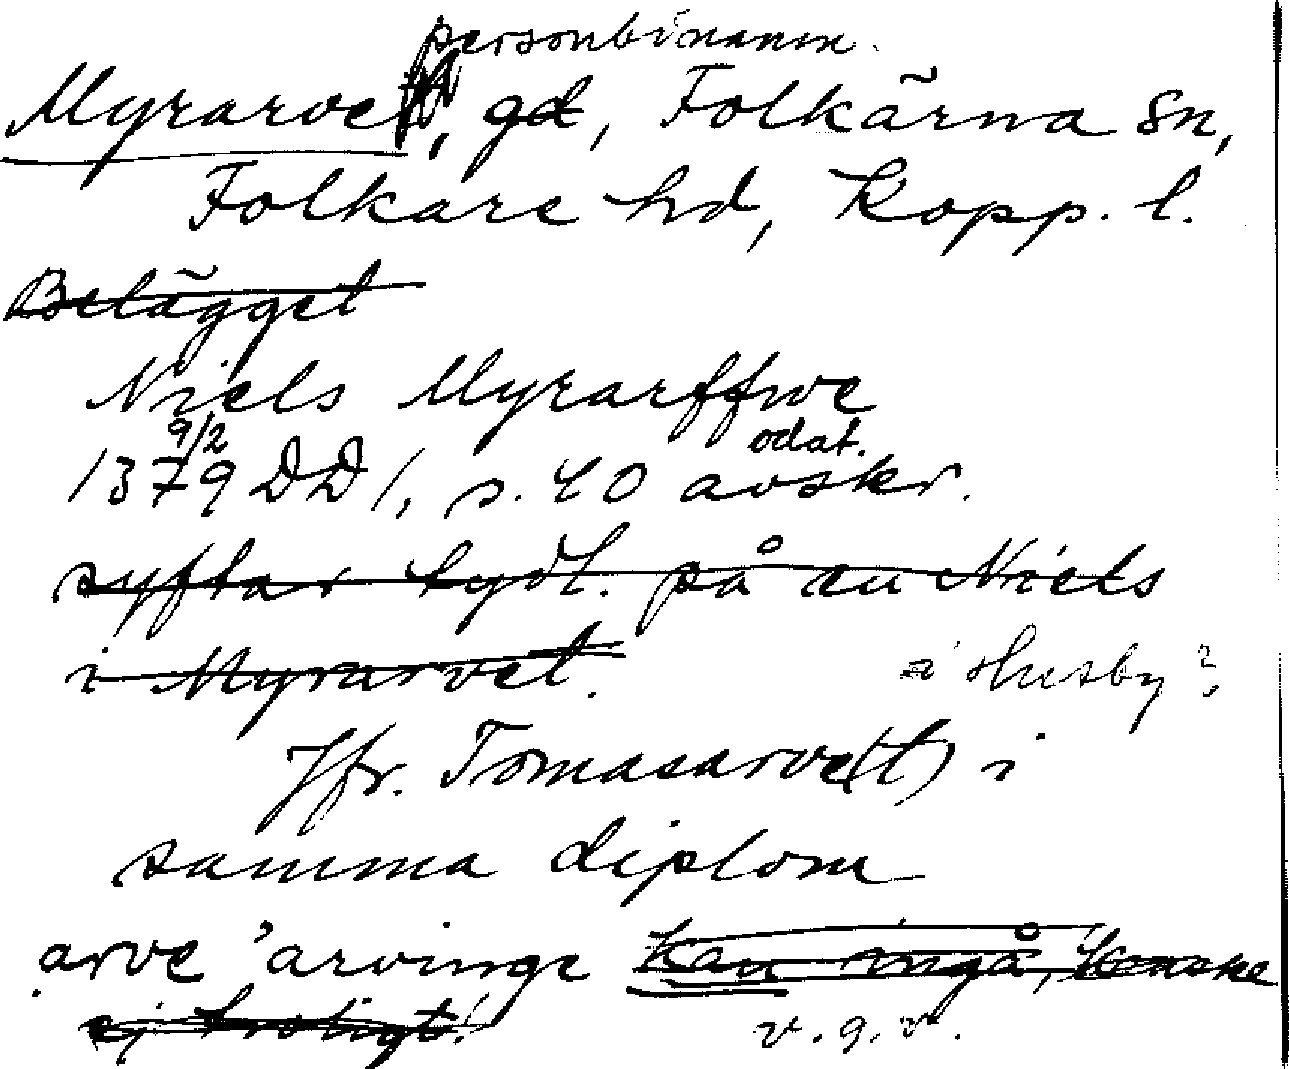 personbinamn.
Myrarve, gd, Folkärna sn,
Folkare hd, Kopp. l.
Belägget
Niels Myrarffwe
9/2 odat.
1379 DD 1, s. 40 avskr.
syftar tydl. på en Niels
i Myrarvet. i Husby?
Jfr. Tomasarve(t) i
samma diplom
arve 'arvinge Kan ingå, kanske
ej troligt!
v. g. v.